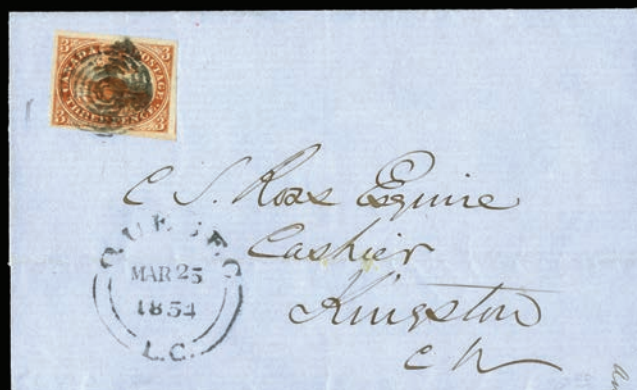 3 CANADA POSTAGE 3
3 THREE PENCE 3
C S. Ross Esquire
Cashier
Kingston
C W
QUEBEC
MAR 25
1854
L.C.